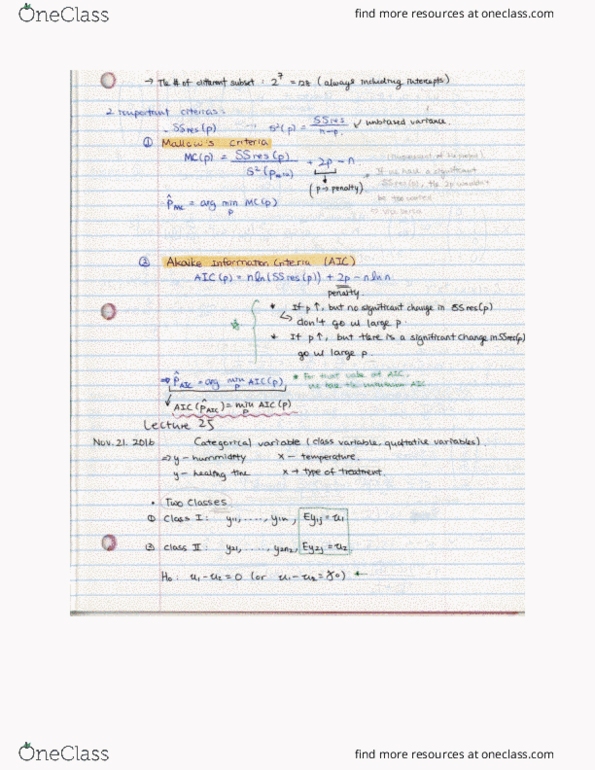 OneClass
find more resources at oneclass.com
→ The # of different subset : 2^7 = 128 (always including intercepts)
2 important criterias:
- SSres(p) → S²(p) = SSres(p) / n-p ✓ unbiased variance.
① Mallow's criteria
MC(p) = SSres(p) / S²(pmax) + 2p - n
(p→penalty)
If we have a significant
SSres(p), the 2p wouldn't
be
vice versa
p̂MC = arg min p MC(p)
② Akaike Information Criteria (AIC)
AIC(p) = n ln(SSres(p)) + 2p - n ln n
penalty
* If p↑, but no significant change in SSres(p)
↳ don't go w/ large p.
* If p↑, but there is a significant change in SSres(p)
go w/ large p
⇒ p̂AIC = arg min p AIC(p)
* For that value of AIC,
we have the minimum AIC
↓ AIC(p̂AIC) = min p AIC(p)
Lecture 25
Nov. 21. 2016 Categorical variable (class variable, qualitative variables)
⇒ y - hummidity x - temperature.
y - healing time x → type of treatment.
• Two Classes
① Class I : y11, ....., y1n, Ey1j = u1
② Class II : y21, ....., y2n2, Ey2j = u2
Ho : u1 - u2 = 0 (or u1 - u2 = γ0) ←
OneClass
find more resources at oneclass.com